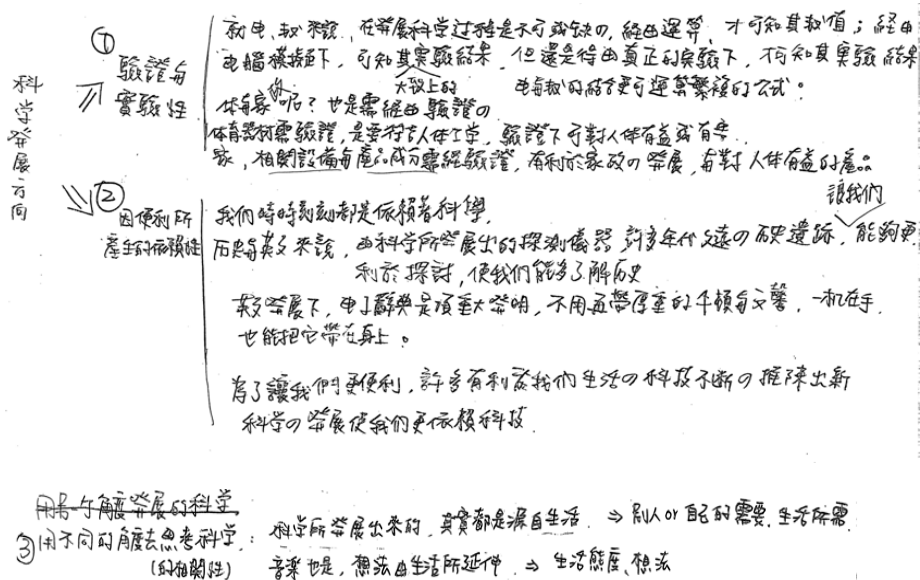 科学發展方向
①
驗證与
實驗性
就电、数來說，在發展科学过程是不可或缺の，經由運算，才可知其数值；經由
电腦模擬下，可知其实験結果，但還是得由真正的实験下，才可知其実験結果
大致上的
电与数的結合更可運算繁複的公式。
体育家 呢？也是需經由驗證の
体育器材需驗證，是要符合人体工学，驗證下可對人体有益或有害.
家，相関設備与產品成分需經驗證，有利於家政の發展，与對人体有益的產品
②
因便利所
產生的依賴性
我們時時刻刻都是依賴著科學.
讓我們
历史与英文來說，由科学所發展出的探測儀器 許多年代久遠の历史遺跡，能夠更
利於探討，使我們能多了解历史
英文發展下，电子辭典是項重大發明，不用再帶厚重的牛頓与文馨，一机在手，
也能把它帶在身上。
為了讓我們更便利，許多有利於我們生活の科技不斷の推陳出新
科学の發展使我們更依賴科技.
用另一个角度發展的科学
③用不同的角度去思考科学.：科学所發展出來的，其實都是源自生活 ⇒ 別人or自己的需要，生活所需.
(的相関性) 音楽也是，想法由生活所延伸 ⇒ 生活態度、想法